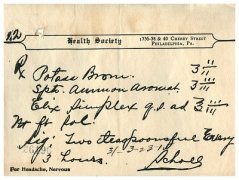 Health Society
1736-38 & 40 CHERRY STREET
PHILADELPHIA, PA.
Rx Potass Brom. ʒ ii
Spts. Ammon Aromat. ʒ iii
Elix Simplex q.s. ad ʒ iii
M. ft. sol.
Sig: Two teaspoonsful Every
3 hours.
Scholl
For Headache, Nervous